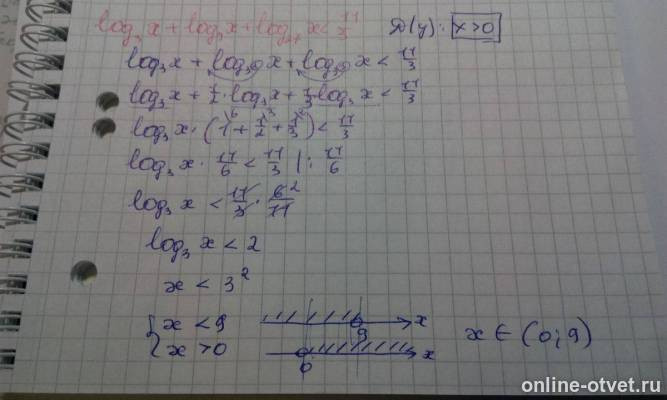 log₃x + log₉x + log₂₇x < 11/3 D(y): x>0
log₃x + log₃²x + log₃³x < 11/3
log₃x + 1/2·log₃x + 1/3·log₃x < 11/3
log₃x·(1 + 1/2 + 1/3) < 11/3
log₃x · 11/6 < 11/3 |: 11/6
log₃x < 11/3 · 6²/11
log₃x < 2
x < 3²
{ x < 9
x > 0
9 x
0 x
x ∈ (0;9)
online-otvet.ru